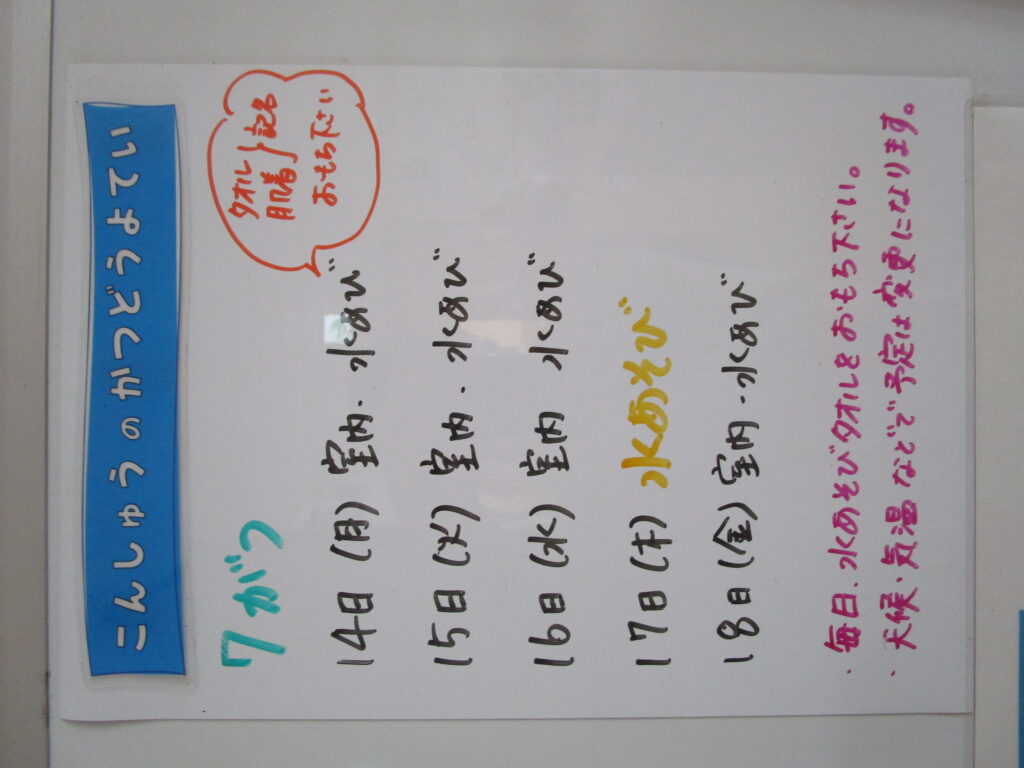 こんしゅうのかつどうよてい
7がつ
タオル
肌着}記名
おもち下さい
14日(月) 室内・水あび
15日(火) 室内・水あび
16日(水) 室内 水あび
17日(木) 水あそび
18日(金) 室内・水あび
・毎日、水あそびタオルをおもち下さい。
・天候・気温などで予定は変更になります。